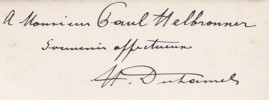 A Monsieur Paul Helbronner
Souvenir affectueux
H. Duhamel